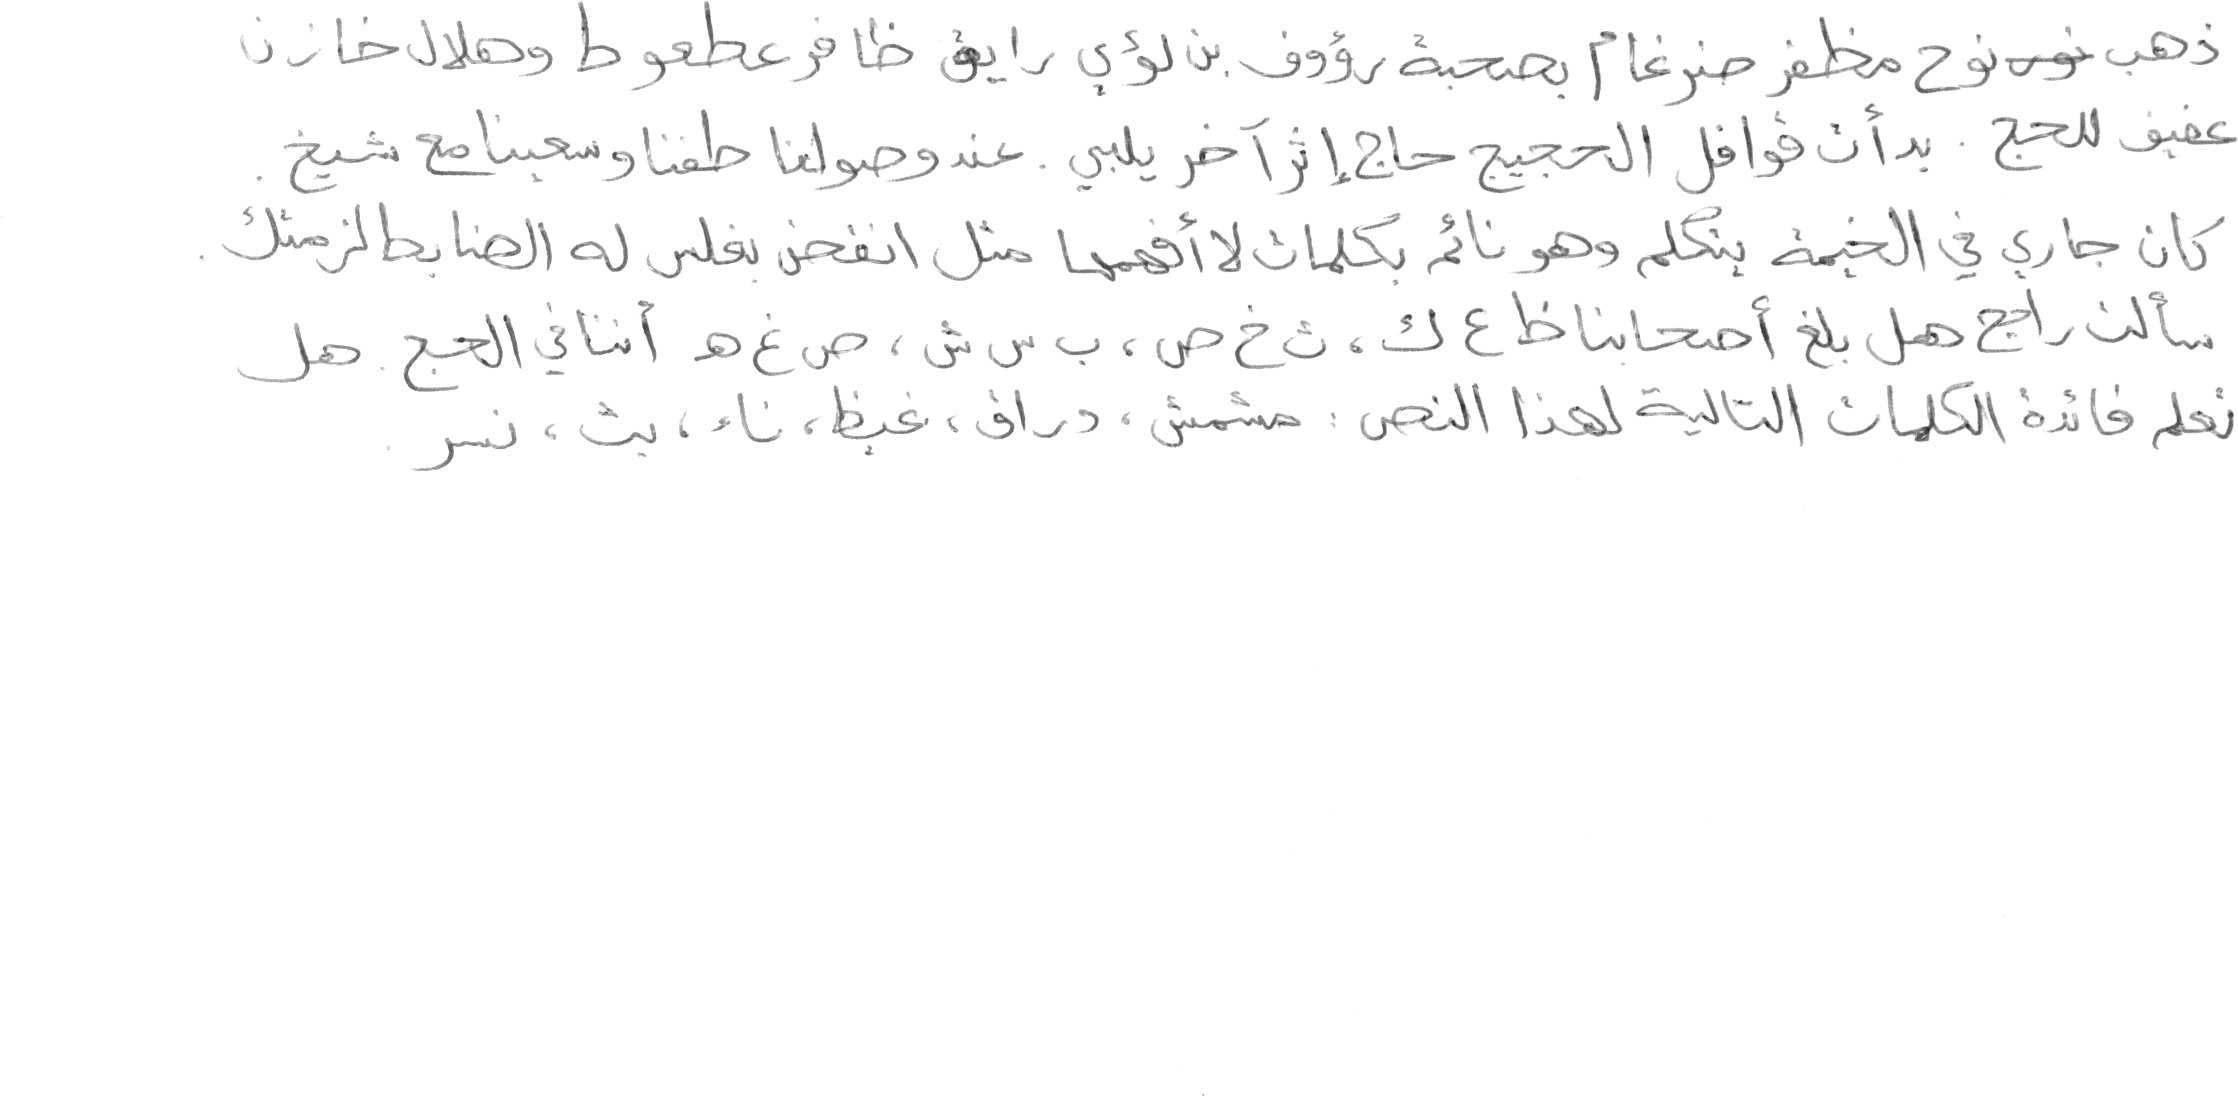 ذهب نوح مظفر ضرغام بصحبة رؤوف بن لؤي رايق ظافر عطعوط وهلال خازن
عفيف للحج . بدأت قوافل الحجيج حاج إثر آخر يلبي . عند وصولنا طفنا وسعينا مع شيخ .
كان جاري في الخيمة يتكلم وهو نائم بكلمات لا أفهمها مثل انفخض بغلس له الضابط لزمتك .
سألت راجح هل بلغ أصحابنا ظ ع ك ، ث خ ص ، ب س ش ، ص غ ه أننا في الحج . هل
تعلم فائدة الكلمات التالية لهذا النص : مشمش ، دراق ، غيظ ، ناء ، بث ، نسر .